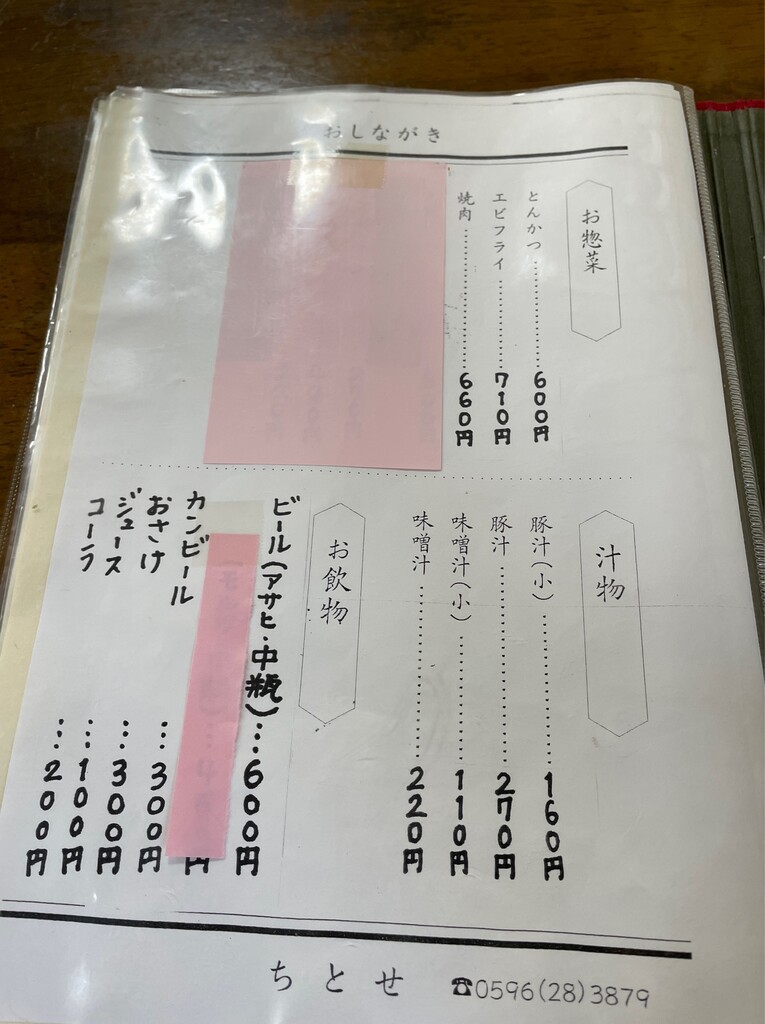 おしながき
お惣菜
とんかつ……………600円
エビフライ……………710円
焼肉……………660円
汁物
豚汁(小)……………160円
豚汁……………270円
味噌汁(小)……………110円
味噌汁……………220円
お飲物
ビール(アサヒ・中瓶)…600円
円
カンビール…300円
おさけ…300円
ジュース…100円
コーラ…200円
ちとせ ☎0596(28)3879